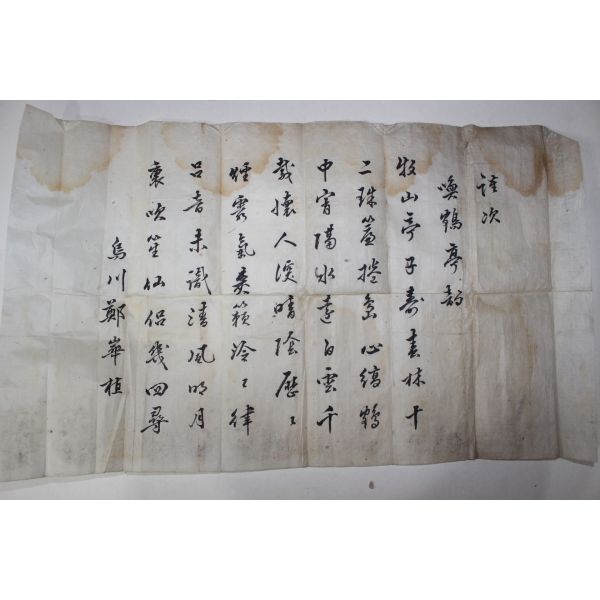 謹次
喚鶴亭韵
牧山亭子壽春林十
二珠簾捲島心縞鶴
中宵隔水遠白雲千
載懷人深晴陰歷々
煙霞氣爽籟泠々律
呂音未識清風明月
裏吹笙仙侶幾回尋
烏川鄭崋植